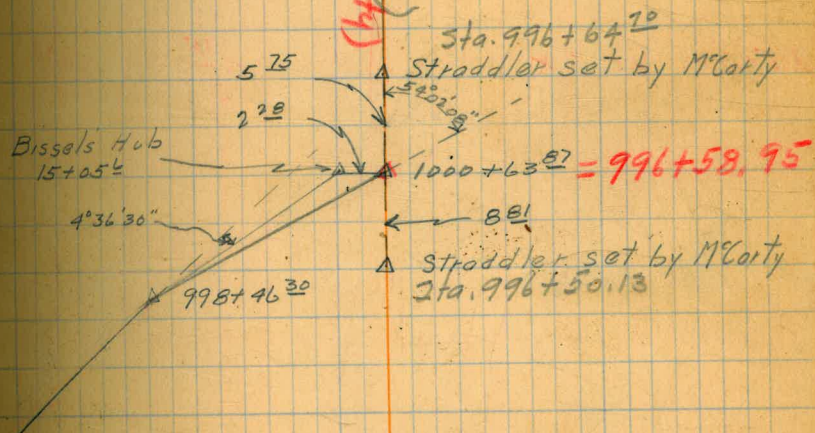 Sta. 996+64 70
5 75
Straddler set by McCarty
54°02'08"
2 28
Bissel's Hub
15+05 6
1000+63 87 = 996+58.95
4°36'30"
8 81
Straddler set by McCarty
998+46 30
Sta. 996+50.13